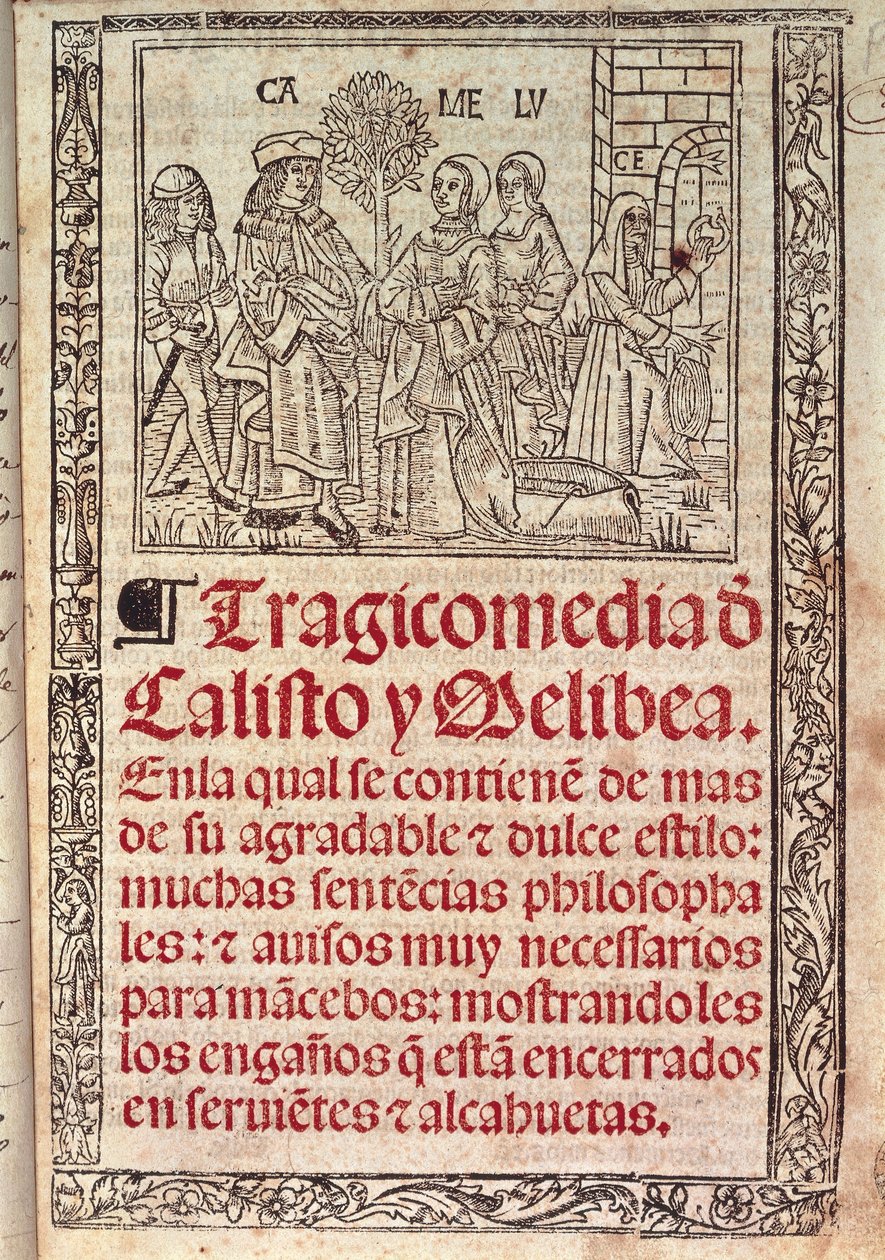 CA
ME LV
CE
¶ Tragicomedia đ
Calisto y Melibea.
Enla qual se contienẽ de mas
de su agradable ⁊ dulce estilo:
muchas sentẽcias philosopha
les: ⁊ auisos muy necessarios
para mãcebos: mostrandoles
los engaños q̃ estã encerrados
en seruiẽtes ⁊ alcahuetas.